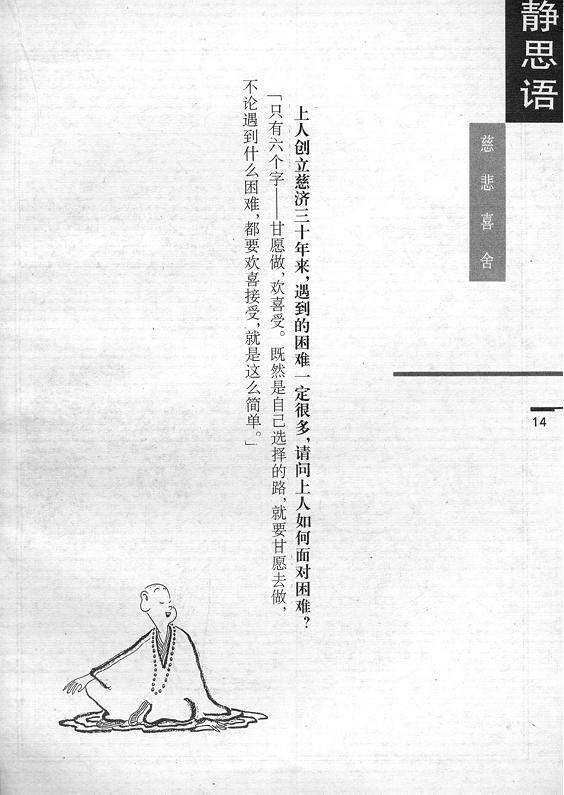 静思语
慈悲喜舍
14
上人创立慈济三十年来，遇到的困难一定很多，请问上人如何面对困难？
「只有六个字——甘愿做，欢喜受。既然是自己选择的路，就要甘愿去做，
不论遇到什么困难，都要欢喜接受，就是这么简单。」